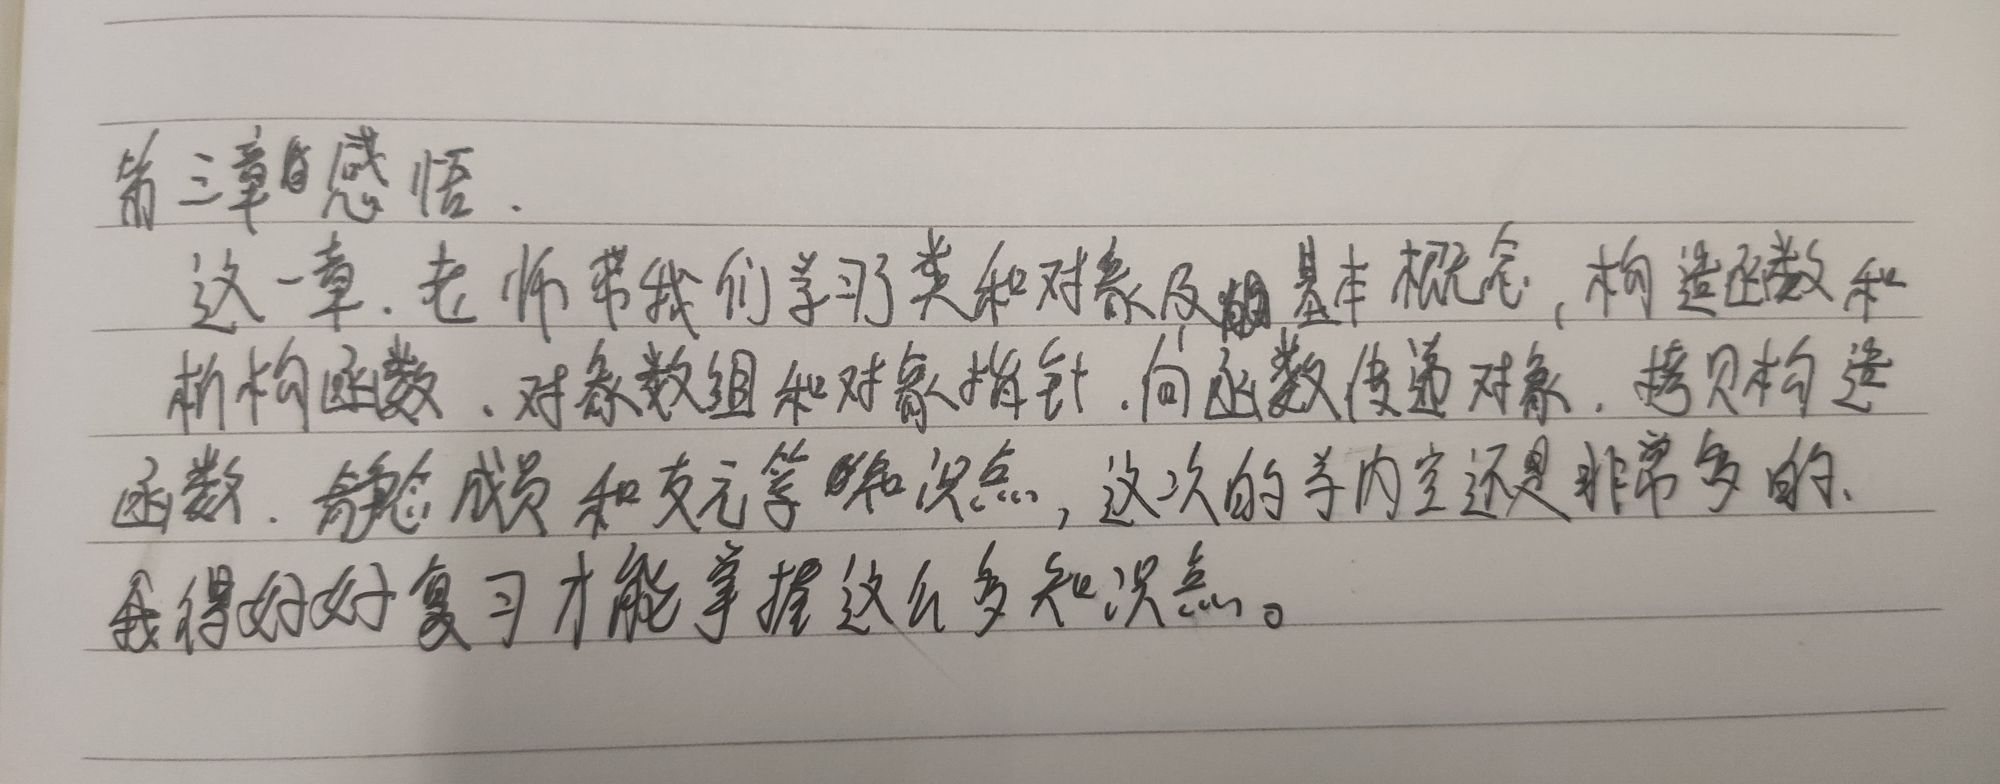 第三章感悟.
这一章.老师带我们学习了类和对象及基本概念,构造函数和
析构函数、对象数组和对象指针.向函数传递对象.拷贝构造
函数.静态成员和友元等知识点,这次的学内容还是非常多的、
我得好好复习才能掌握这么多知识点。